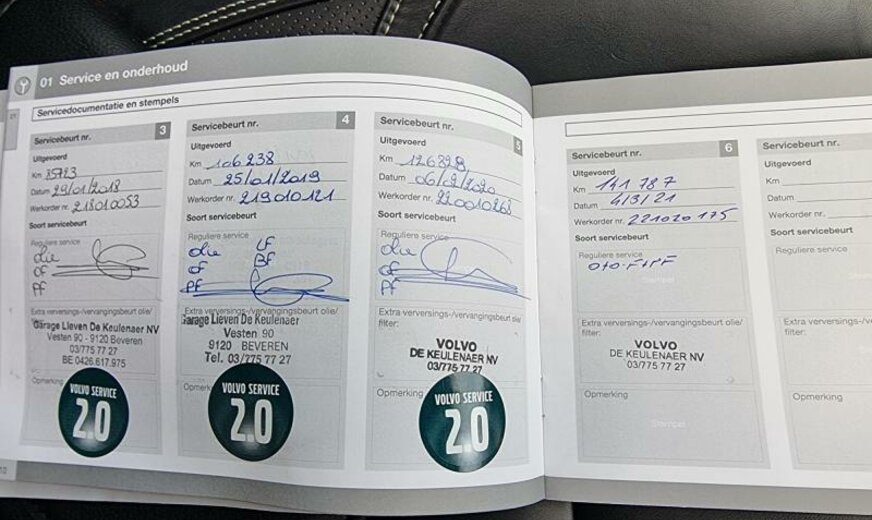 01 Service en onderhoud
Servicedocumentatie en stempels
Servicebeurt nr. 3
Uitgevoerd
Km 85723
Datum 29/01/2018
Werkorder nr. 218010053
Soort servicebeurt
Reguliere service
olie
OF
PF
Extra verversings-/vervangingsbeurt olie/
Garage Lieven De Keulenaer NV
Vesten 90 - 9120 Beveren
03/775 77 27
BE 0426.617.975
Opmerking
VOLVO SERVICE
2.0
Servicebeurt nr. 4
Uitgevoerd
Km 106238
Datum 25/01/2019
Werkorder nr. 219010121
Soort servicebeurt
Reguliere service
olie LF
OF BF
PF
Extra verversings-/vervangingsbeurt olie/
Garage Lieven De Keulenaer
Vesten 90
9120 BEVEREN
Tel. 03/775 77 27
Opmerking
VOLVO SERVICE
2.0
Servicebeurt nr. 5
Uitgevoerd
Km 126828
Datum 06/2/2020
Werkorder nr. 220010268
Soort servicebeurt
Reguliere service
olie
OF
PF
Extra verversings-/vervangingsbeurt olie/
filter:
VOLVO
DE KEULENAER NV
03/775 77 27
Opmerking
VOLVO SERVICE
2.0
Servicebeurt nr. 6
Uitgevoerd
Km 141 787
Datum 4/3/21
Werkorder nr. 221020175
Soort servicebeurt
Reguliere service
O+O-F+PF
Extra verversings-/vervangingsbeurt olie/
filter:
VOLVO
DE KEULENAER NV
03/775 77 27
Opmerking
Stempel
Servicebeurt nr.
Uitgevoerd
Km
Datum
Werkorder nr.
Soort servicebeurt
Reguliere service
Extra verversings-/
filter:
Opmerking